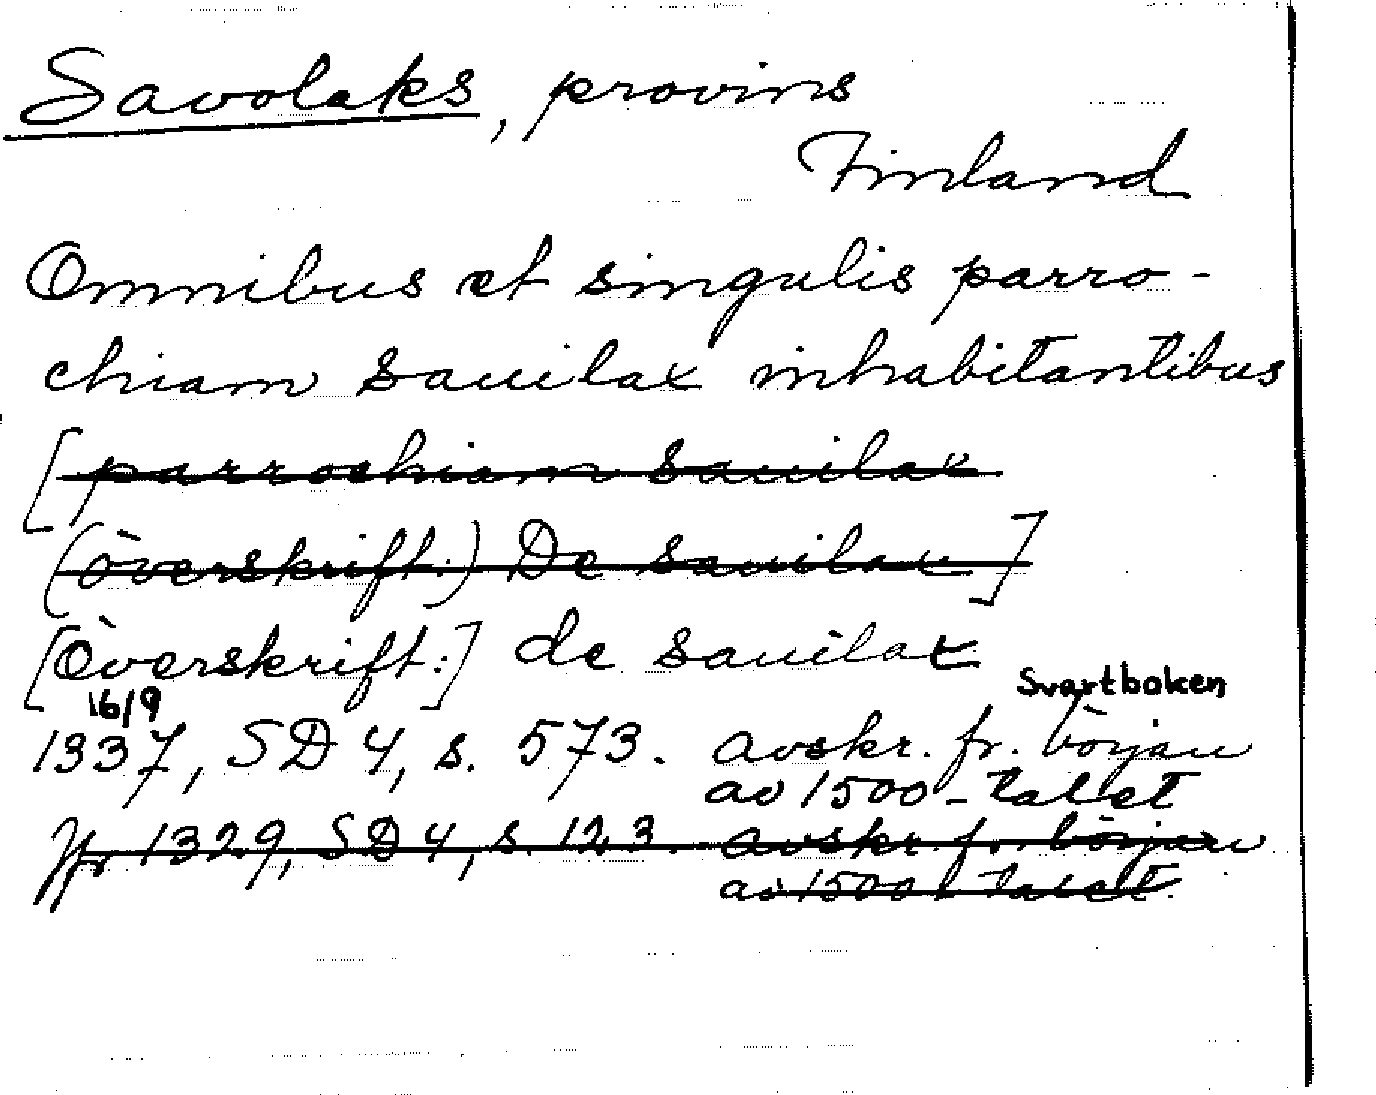 Savolaks, provins
Finland
Omnibus et singulis parro-
chiam sauilax inhabitantibus
[parrochiam sauilax
(överskrift:) De sauilax]
[Överskrift:] de sauilax
16/9 Svartboken
1337, SD 4, s. 573. avskr. fr. början
av 1500-talet
Jfr 1329, SD 4, s. 123. avskr. f. början
av 1500-talet.